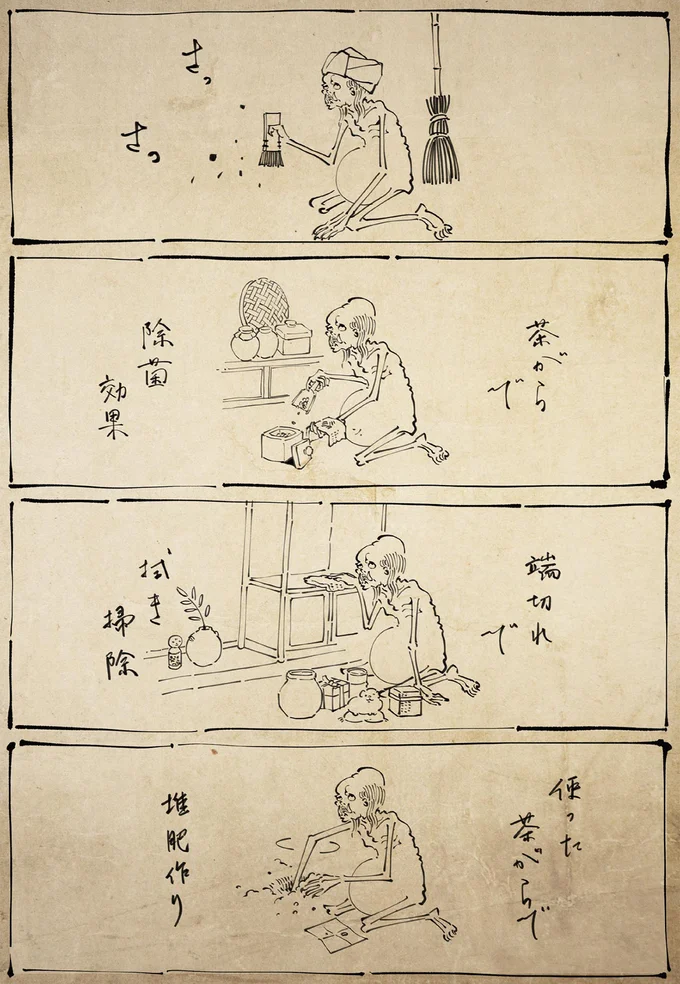 さっ
さっ
茶がら
で
除菌
効果
端切れ
で
拭き
掃除
使った
茶がらで
堆肥作り